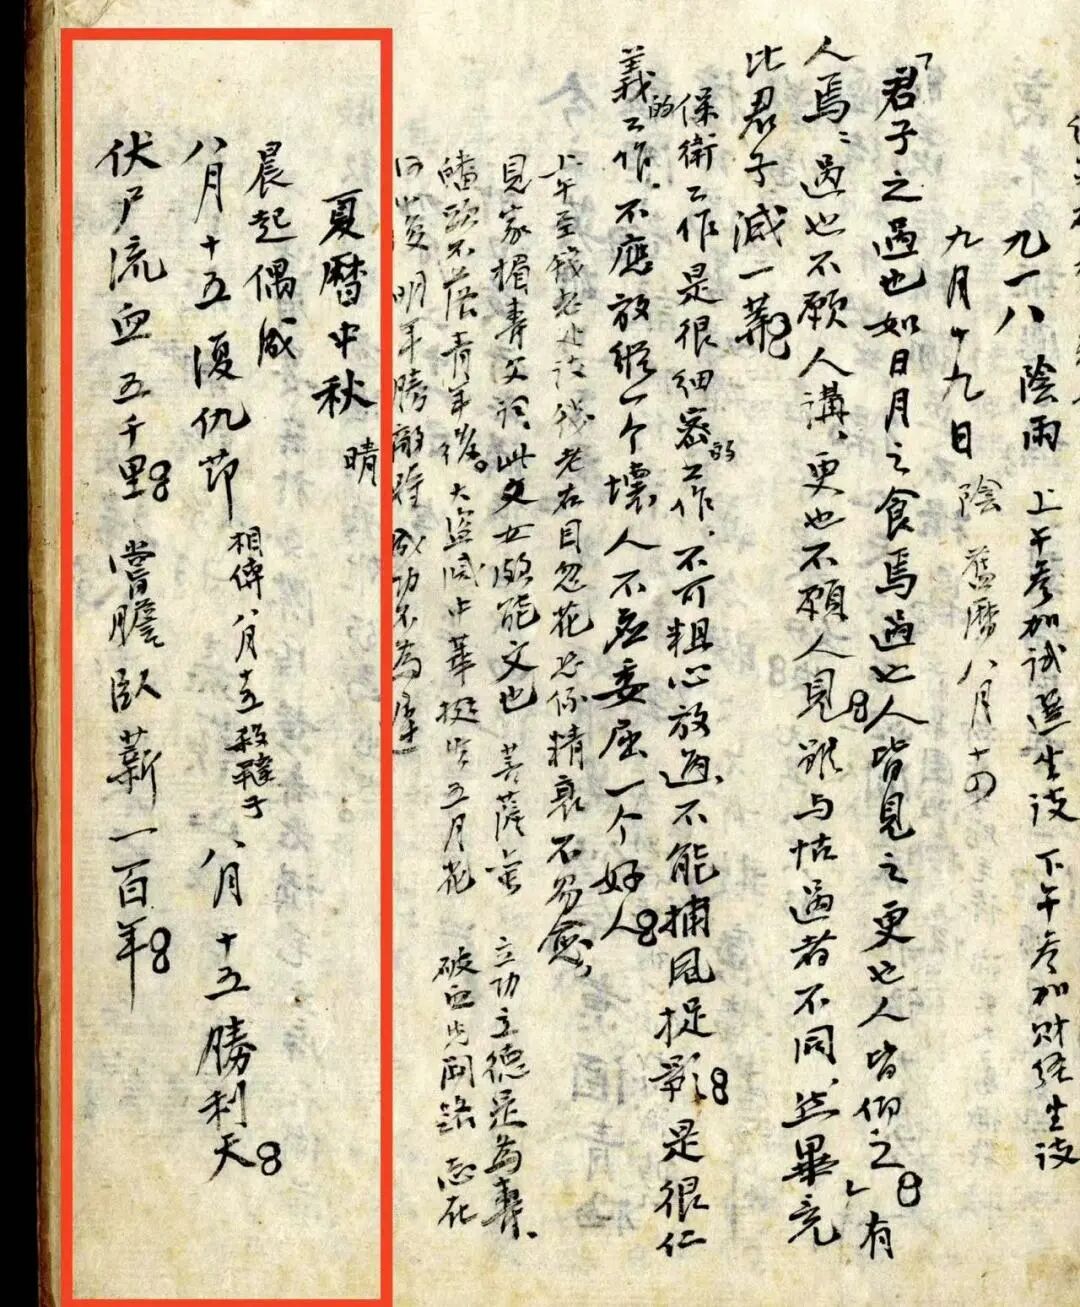 九一八 陰雨 上午參加試選生談 下午參加財經生談
九月十九日 陰 舊曆八月十四
「君子之過也如日月之食焉過也人皆見之更也人皆仰之」有
人焉、過也不願人講、更也不願人見。雖与怙過者不同、然畢竟
比君子減一籌。
保衛工作是很細密的工作、不可粗心放過、不能捕風捉影。是很仁
義的工作、不應放縱一个壞人不应委屈一个好人。
上午至錢老处談錢老右目忽花 精衰不易愈、
見家楣壽父詞此文女頗能文也 菩薩 立功立德是為壽、
不落青年後。大盜 中華 五月花 破 志在
明年勝敵 成功不為遲
夏曆中秋 晴
晨起偶成
八月十五復仇節 相傳八月十五殺韃子 八月十五勝利天。
伏尸流血五千里。嘗膽臥薪一百年。